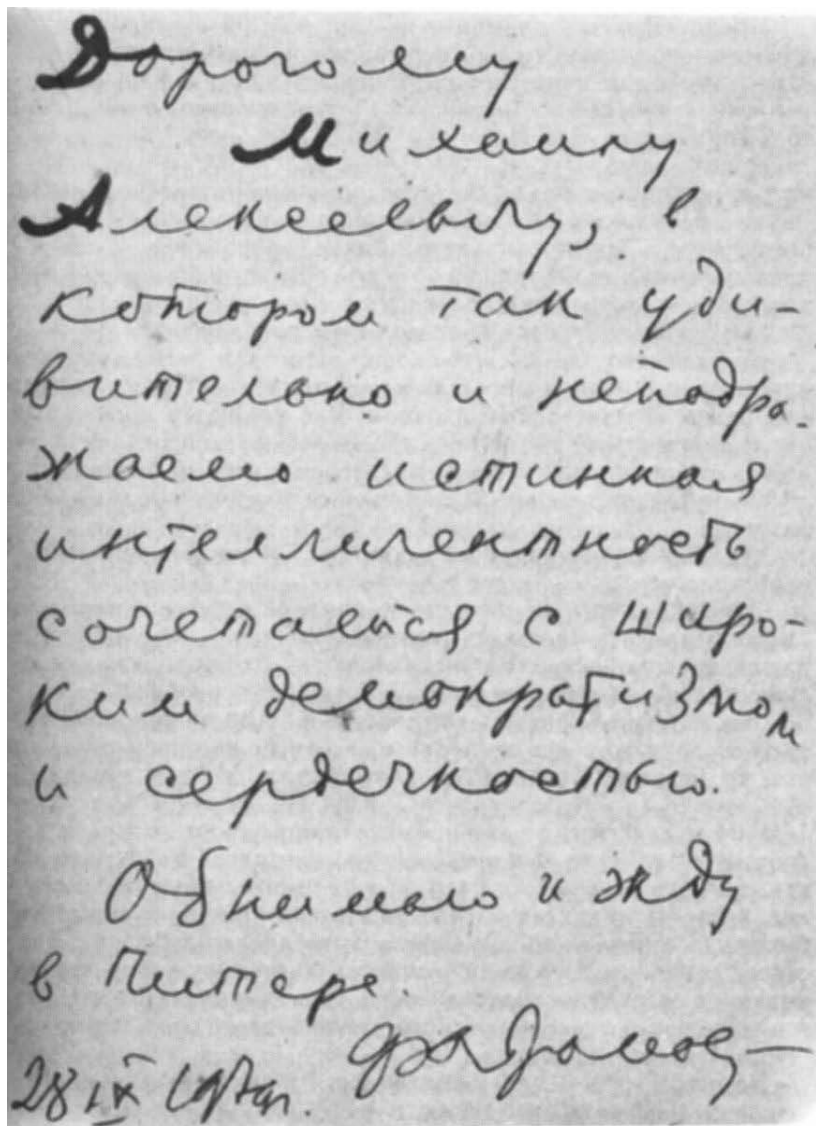 Дорогому
Михаилу
Алексеевичу, в
котором так уди-
вительно и неподра-
жаемо истинная
интеллигентность
сочетается с широ-
ким демократизмом
и сердечностью.
Обнимаю и жду
в Питере.
28 IX